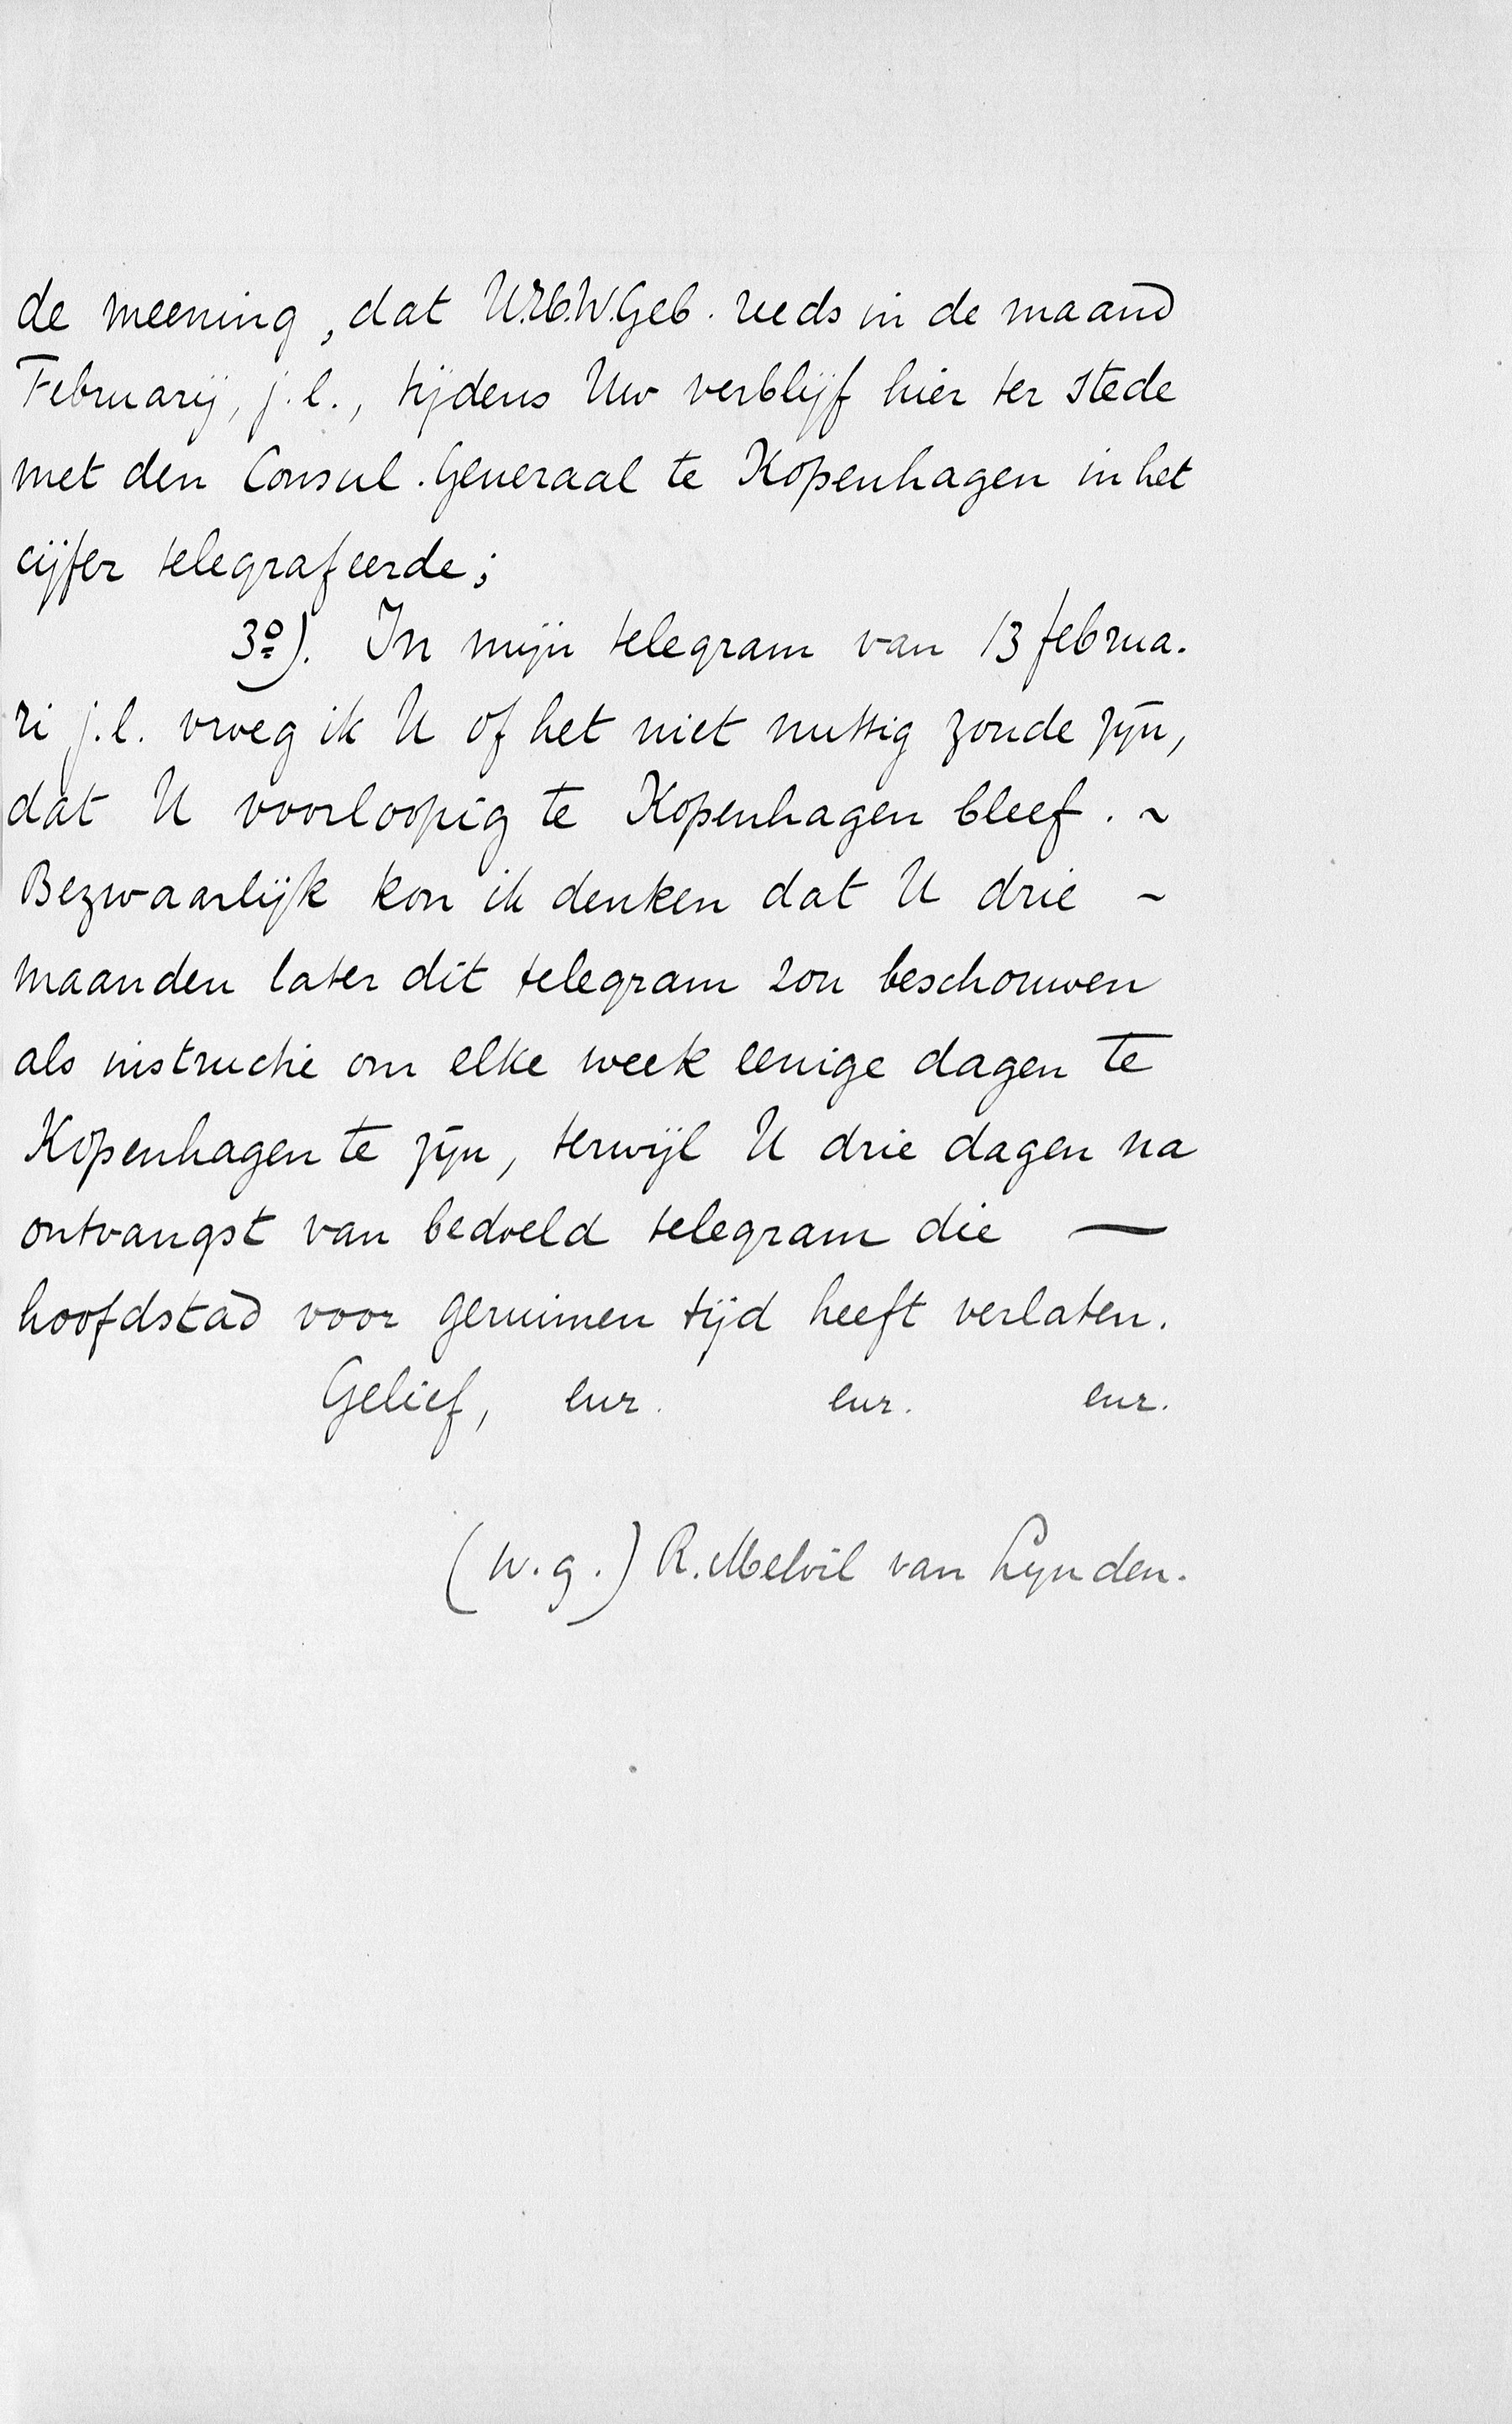 de meening, dat U.H.W.Geb. reeds in de maand
Februarij, j.l., tijdens Uw verblijf hier ter stede
met den Consul. Generaal te Kopenhagen in het
cijfer telegrafeerde;
3º). In mijn telegram van 13 februa.
ri j.l. vroeg ik U of het niet nuttig zoude zijn,
dat U voorloopig te Kopenhagen bleef. ~
Bezwaarlijk kon ik denken dat U drie ~
maanden later dit telegram zou beschouwen
als instructie om elke week eenige dagen te
Kopenhagen te zijn, terwijl U drie dagen na
ontvangst van bedoeld telegram die —
hoofdstad voor geruimen tijd heeft verlaten.
Gelief, enz. enz. enz.
(w.g.) R. Melvil van Lynden.